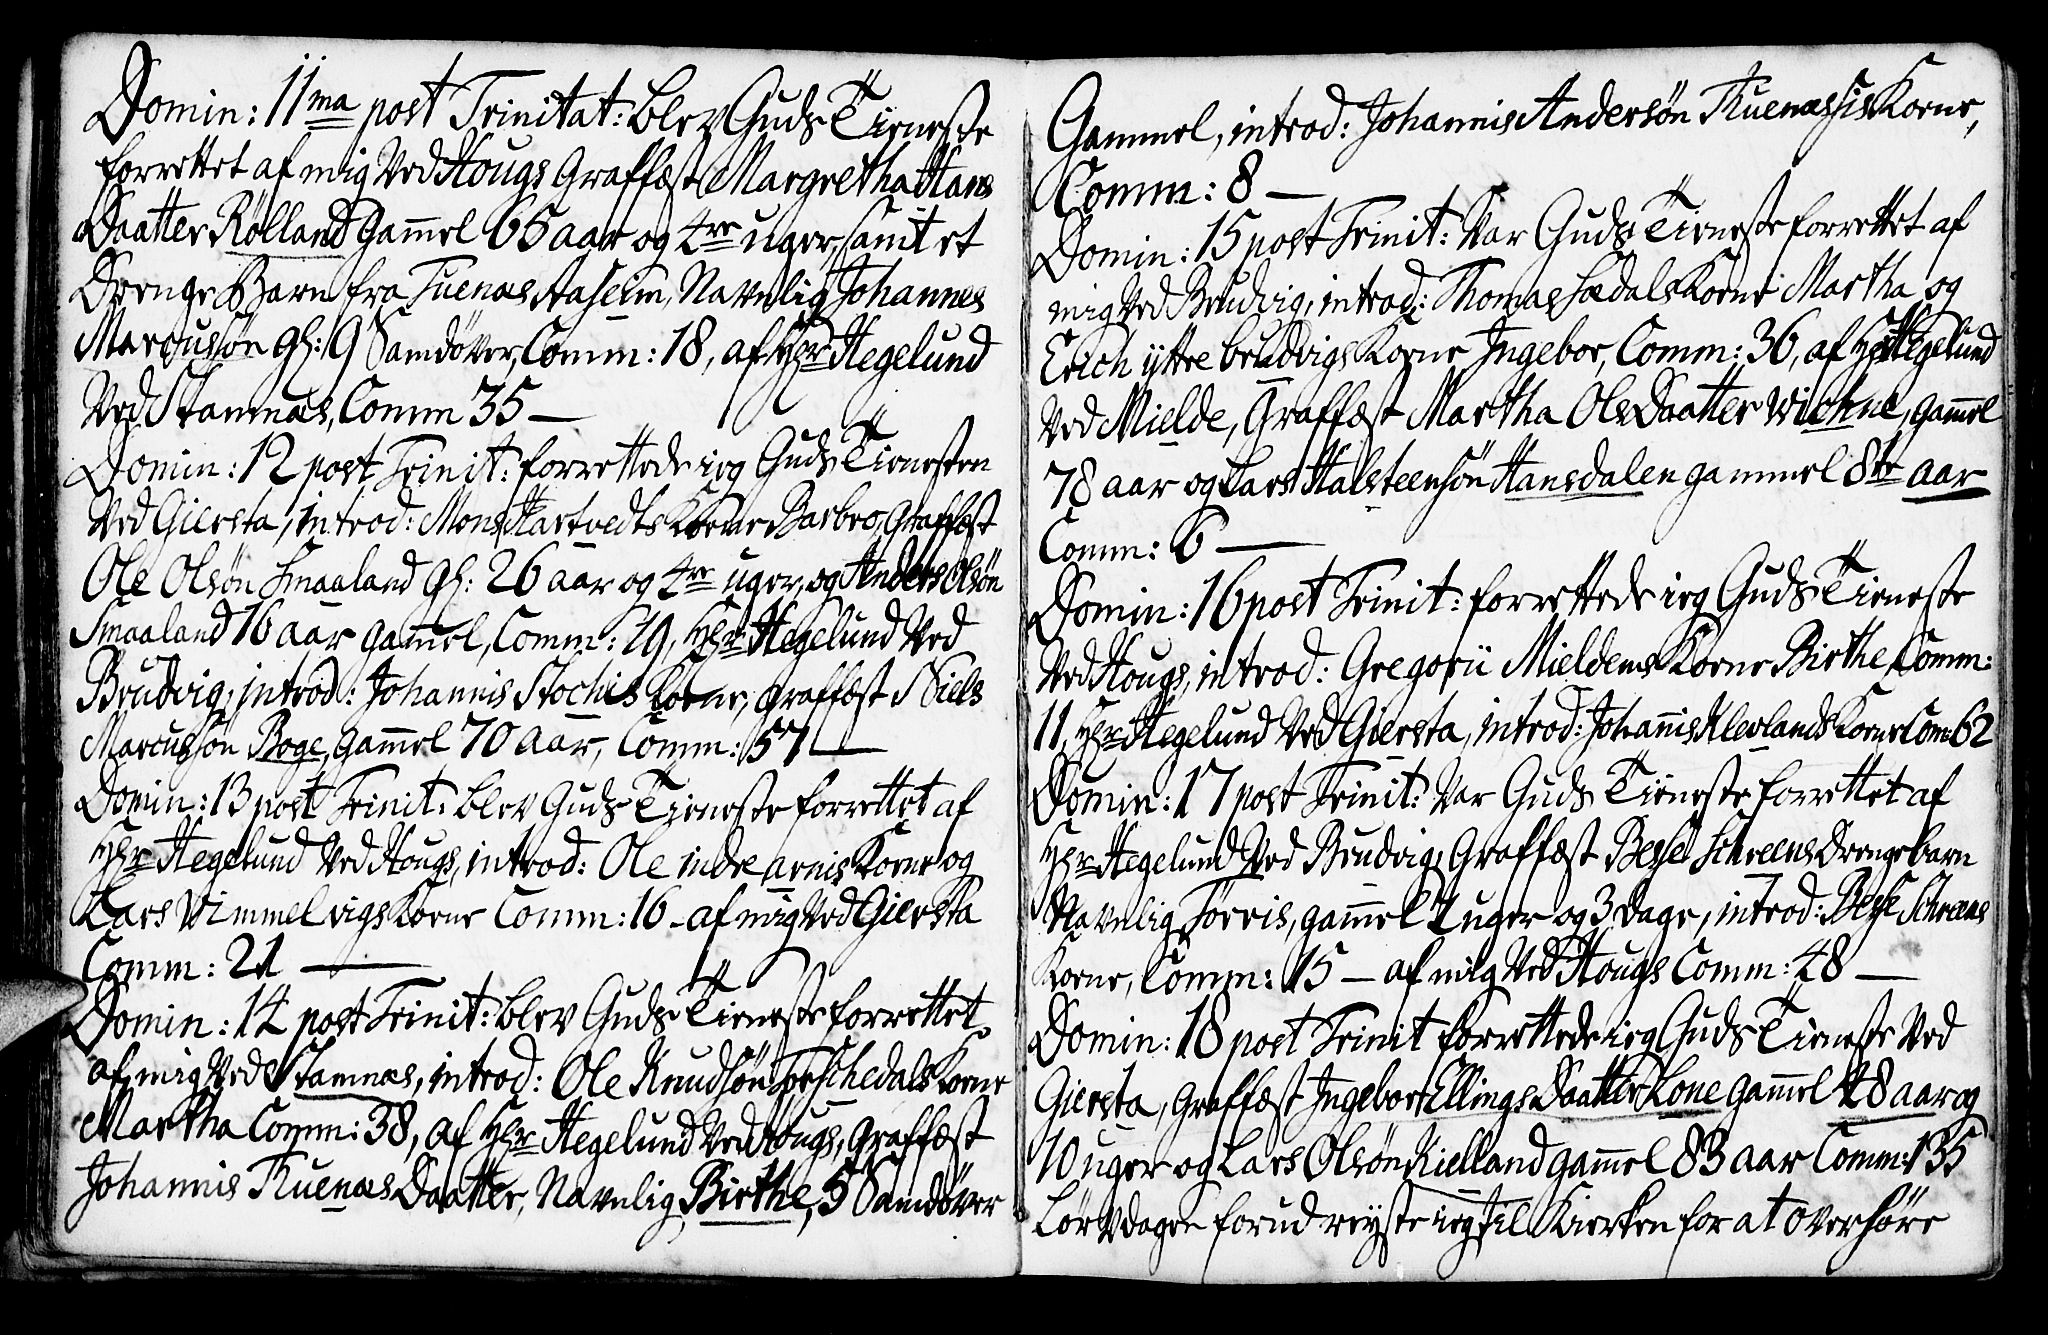 Domin: 11ma post Trinitat: blev Guds Tieneste
forrettet af mig Ved Hougs Graffæst Margretha Hans
Daatter Rølland Gam̄el 65 aar og 4re uger, samt et
Drenge Barn fra Tuenæs Aaseim, Navnlig Johannes
Marcussøn gl: 9 Samdøver, Comm: 18, af Hr Hegelund
Ved Stamnæs, Comm 35 —
Domin: 12 post Trinit: forrettede ieg Guds Tienesten
Ved Giersta, introd: Mons Hartvedts Kone Barbro, Graffæst
Ole Olsøn Smaaland gl: 26 aar og 4re uger, og Anders Olsøn
Smaaland 16 aar gam̄el, Comm: 29, Hr Hegelund Ved
Brudvig, introd: Johannis Stochis Kone, graffæst Niels
Marcussøn Boge, gam̄el 70 aar, Comm: 57 —
Domin: 13 post Trinit: blev Guds Tieneste forrettet af
Hr Hegelund Ved Hougs, introd: Ole indre arnis Kone og
Lars Vimmelvigs Kone Comm: 16 - af mig Ved Giersta
Comm: 21 —
Domin: 14 post Trinit: blev Guds Tieneste forrettet
af mig Ved Stamnæs, introd: Ole Knudsøn Kone
Martha Comm: 38, af Hr Hegelund Ved Hougs, Graffæst
Johannis Tuenæs Daatter, Navnlig Birthe, 5 Samdøver
Gammel, introd: Johannis Andersøn Tuenæsis Kone,
Comm: 8 —
Domin: 15 post Trinit: Var Guds Tieneste forrettet af
mig Ved Brudvig, introd: Thomas Sædals Kone Martha og
Erich ÿttre brudvigs Kone Ingebor, Comm: 36, af Hr Hegelund
Ved Mielde, Graffæst Martha Ols Daatter Wichne, gam̄el
78 aar og Lars Halsteensøn Hansdalen gammel 8te aar
Comm: 6 —
Domin: 16 post Trinit: forrettede ieg Guds Tieneste
Ved Hougs, introd: Gregorii Mieldens Kone Birthe, Comm:
11, Hr Hegelund Ved Giersta, introd: Johan̄is Klevlands Kone Com: 62
Domin: 17 post Trinit: Var Guds Tieneste forrettet af
Hr Hegelund Ved Brudvig, Graffæst Besse Schreens Drengebarn
Navnlig Tørris, gam̄el 2 uger og 3 dage, introd: Besse Schreens
Kone, Comm: 15 — af mig Ved Hougs Comm: 48 —
Domin: 18 post Trinit forrettede ieg Guds Tieneste Ved
Giersta, graffæst Ingebor Ellings Daatter Lone gam̄el 48 aar og
10 uger og Lars Olsøn Rielland gam̄el 83 aar Comm: 135
Løevdagen forud reyste ieg til Kierken for at overhøre